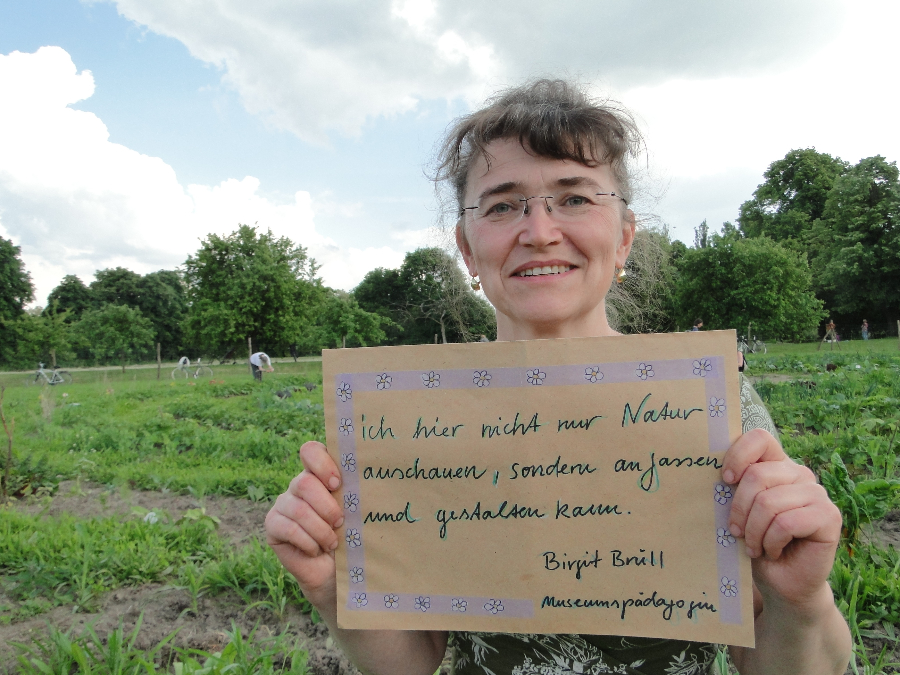 ich hier nicht nur Natur
anschauen, sondern anfassen
und gestalten kann.
Birgit Brüll
Museumspädagogin